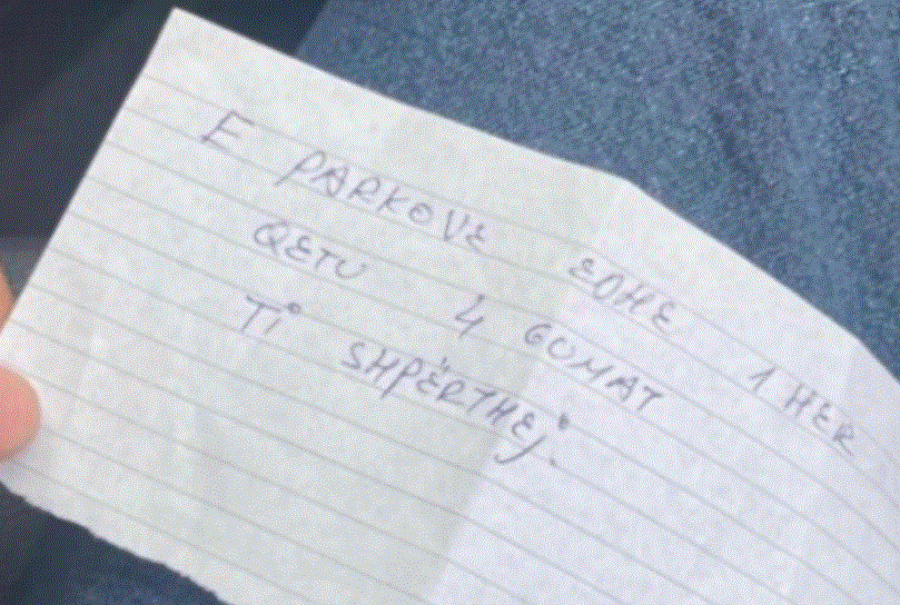 E PARKOVE EDHE 1 HER
QETU 4 GOMAT
Ti SHPËRTHEj.